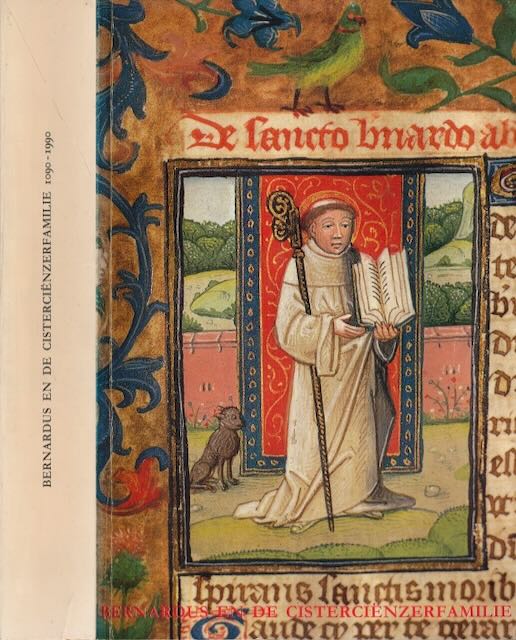 BERNARDUS EN DE CISTERCIËNZERFAMILIE 1090-1990
De sancto b'nardo ab
de
te
b'i
di
di
ri
est
vt
di
spirans sanctis morib
BERNARDUS EN DE CISTERCIËNZERFAMILIE